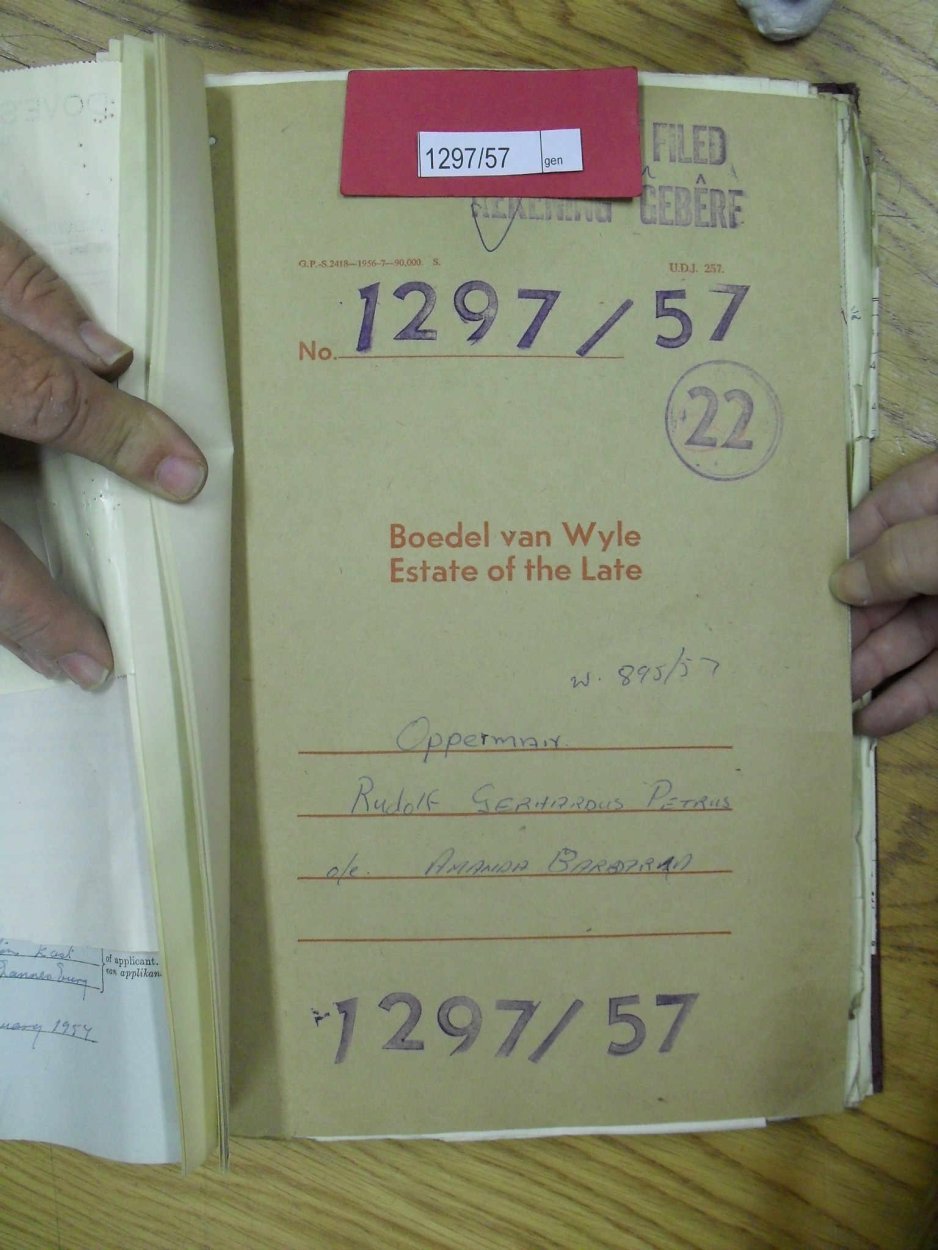 1297/57 gen
FILED
REKENING GEBÊRE
G.P.-S.2418—1956-7—90,000. S. U.D.J. 257.
No. 1297/57
22
Boedel van Wyle
Estate of the Late
w. 895/57
Opperman
Rudolf Gerhardus Petrus
o/e. Amanda Barbarra
1297/57
Kost
of applicant.
van applikan
1957